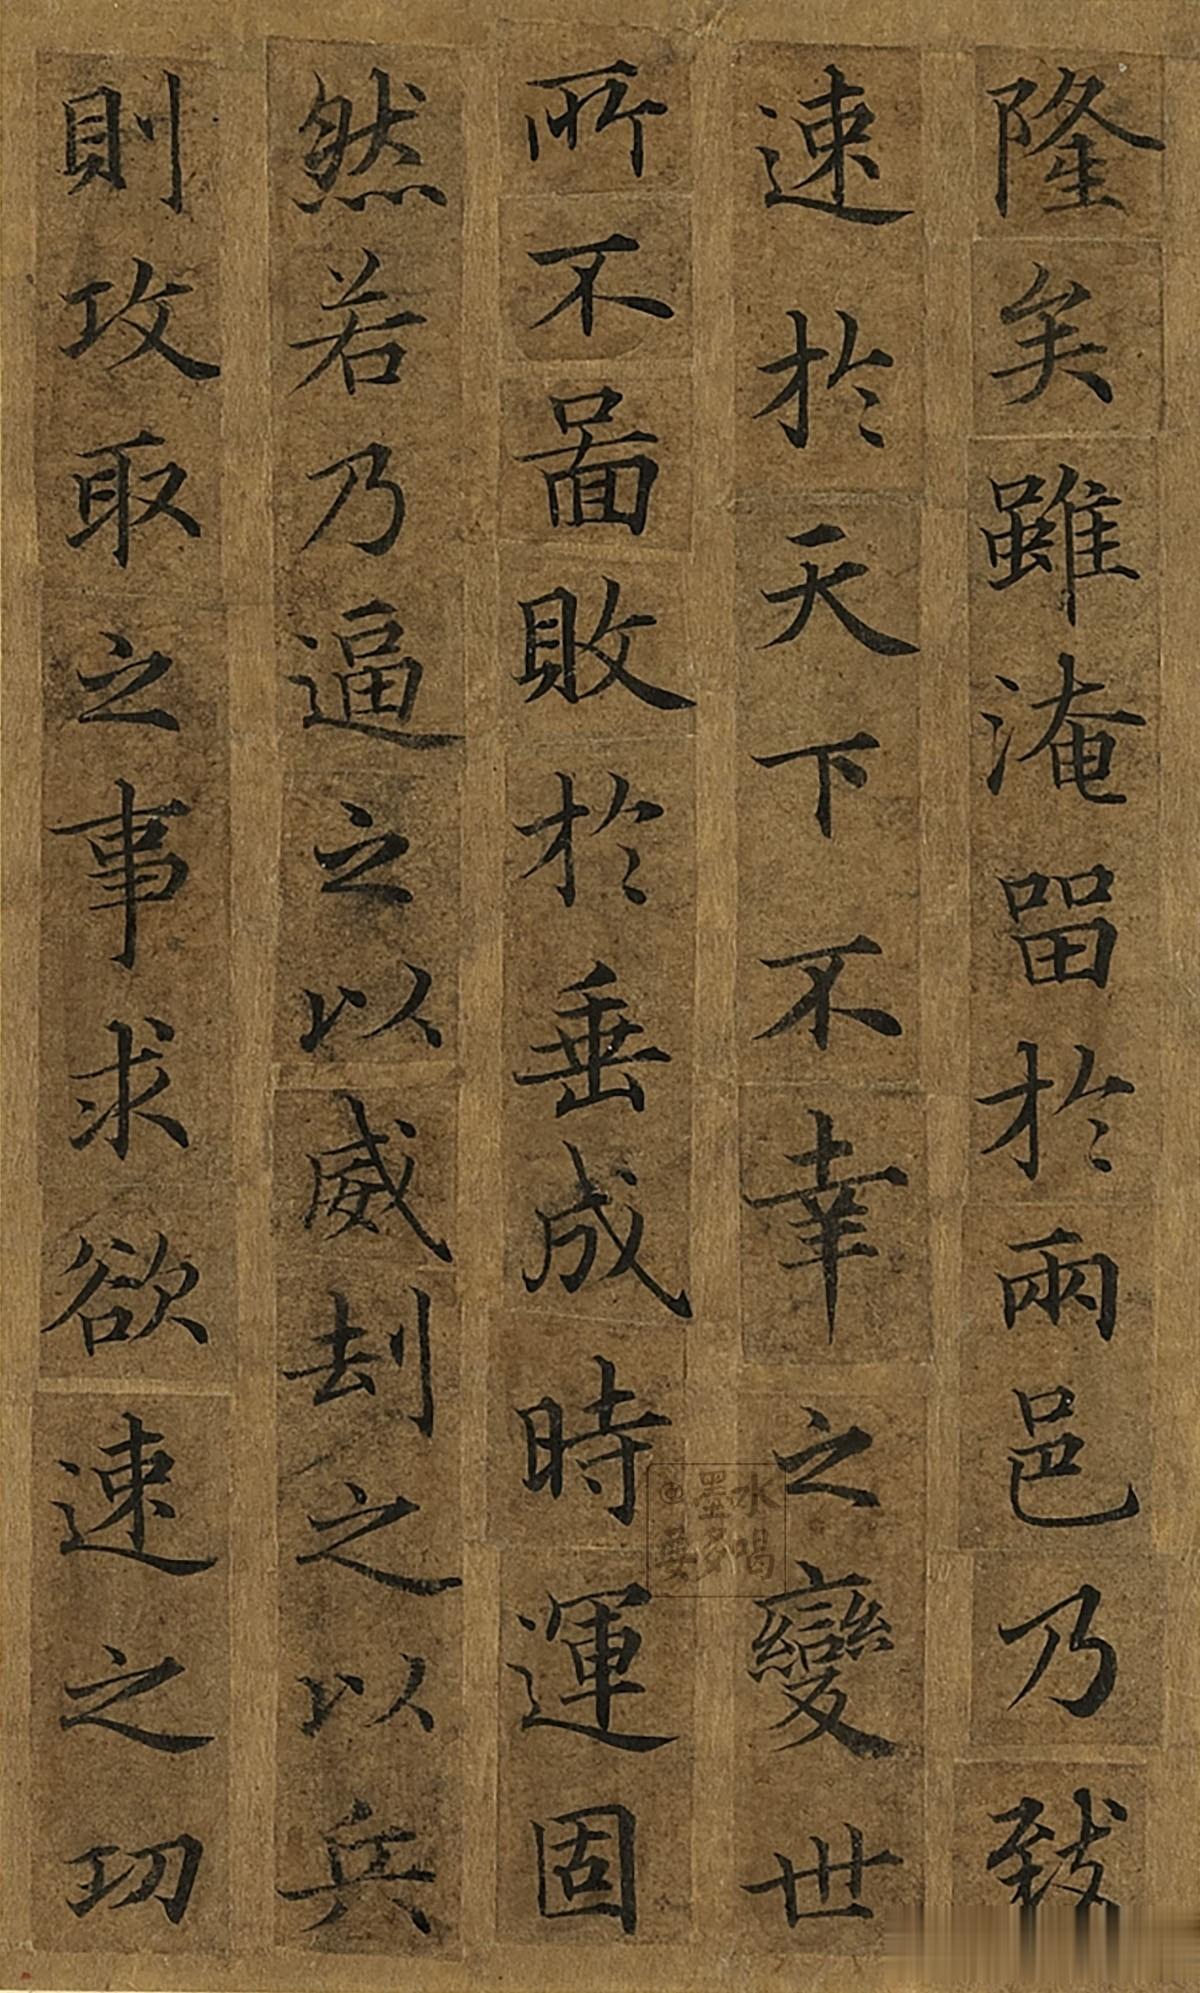 隆矣雖淹留於兩邑乃致
速於天下不幸之變世
所不圖敗於垂成時運固
然若乃逼之以威刼之以兵
則攻取之事求欲速之功
@墨水
要多喝